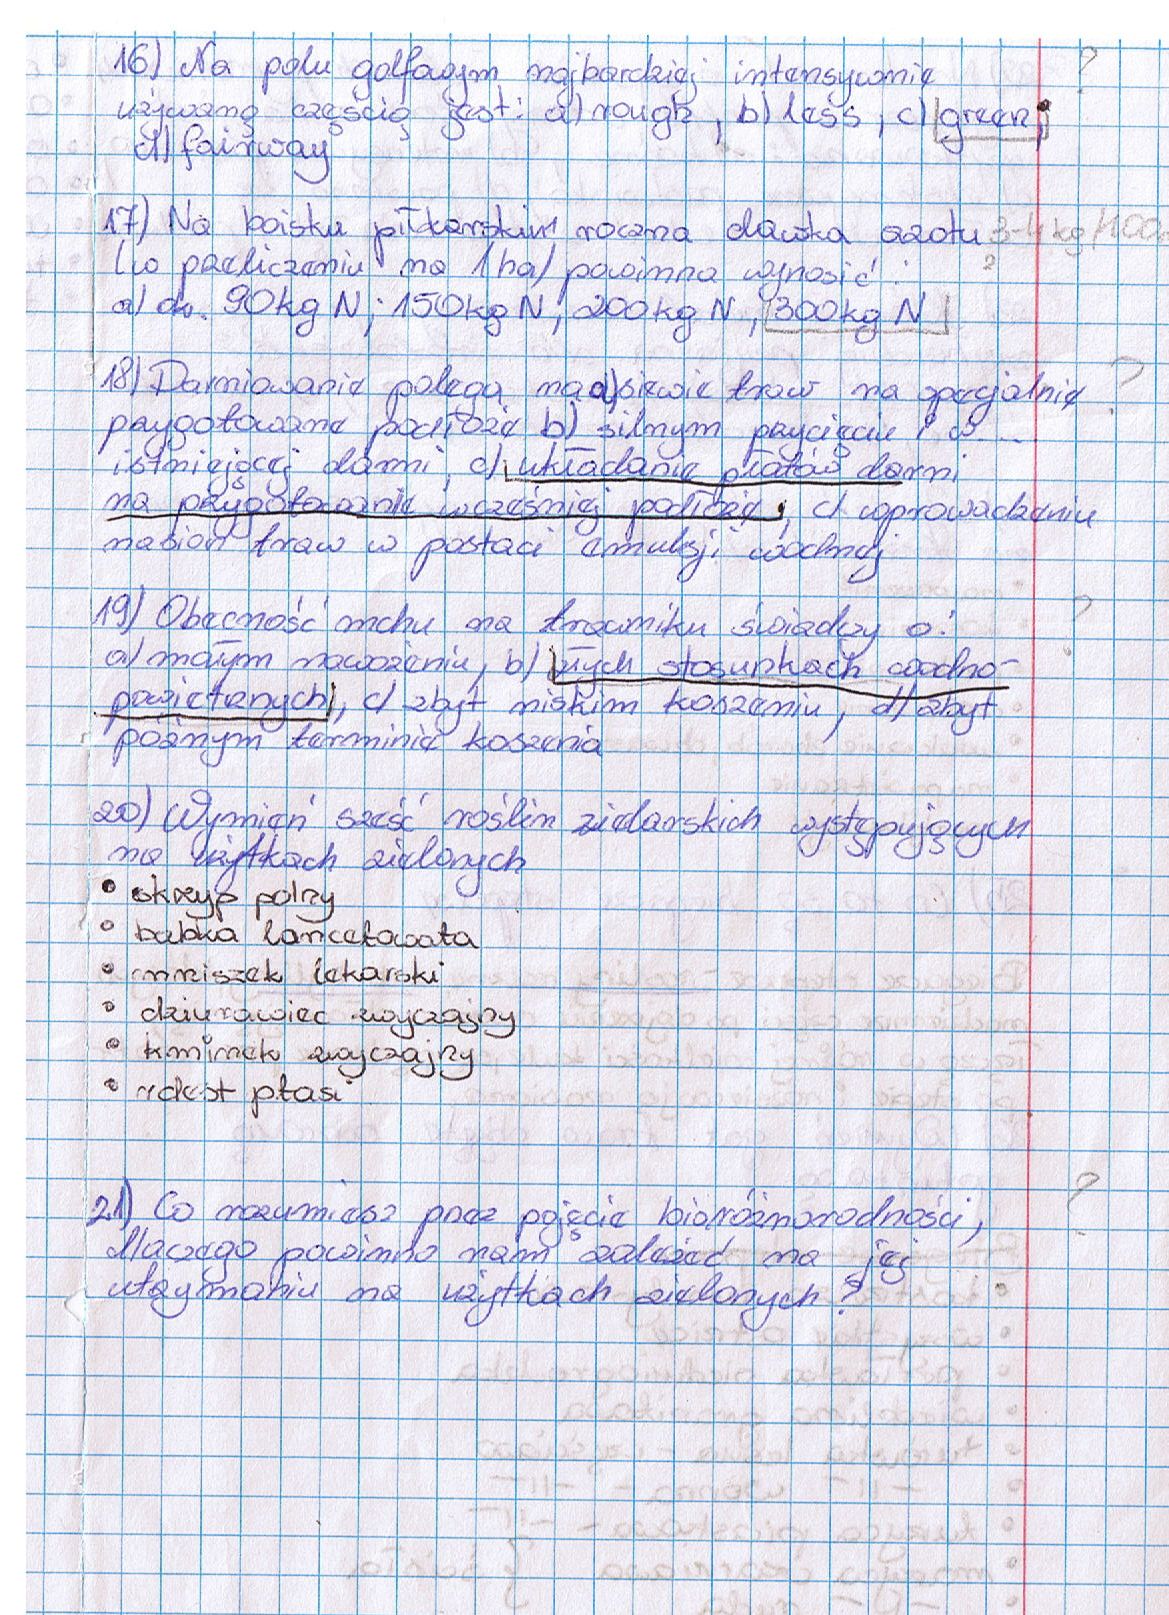 16) Na polu golfowym najbardziej intensywnie
używaną częścią jest: a) rough, b) less, c) green,
d) fairway
17) Na boisku piłkarskim roczna dawka azotu 3-4 kg/100
(w przeliczeniu na 1ha) powinna wynosić:
a) ok. 90kg N; 150kg N, 200kg N, 300kg N
18) Darniowanie polega na a) siewie traw na specjalnie
przygotowane podłoże b) silnym przycięciu
istniejącej darni, c) układanie płatów darni
na przygotowanie wcześniej podłoże, d) wprowadzeniu
nasion traw w postaci emulsji wodnej
19) Obecność mchu na trawniku świadczy o:
a) małym nawożeniu, b) złych stosunkach wodno-
powietrznych, c) zbyt niskim koszeniu, d) zbyt
późnym terminie koszenia
20) Wymień sześć roślin zielarskich występujących
na użytkach zielonych
• skrzyp polny
• babka lancetowata
• mniszek lekarski
• dziurawiec zwyczajny
• kminek zwyczajny
• rdest ptasi
21) Co rozumiesz przez pojęcie bioróżnorodności,
dlaczego powinno nam zależeć na jej
utrzymaniu na użytkach zielonych?